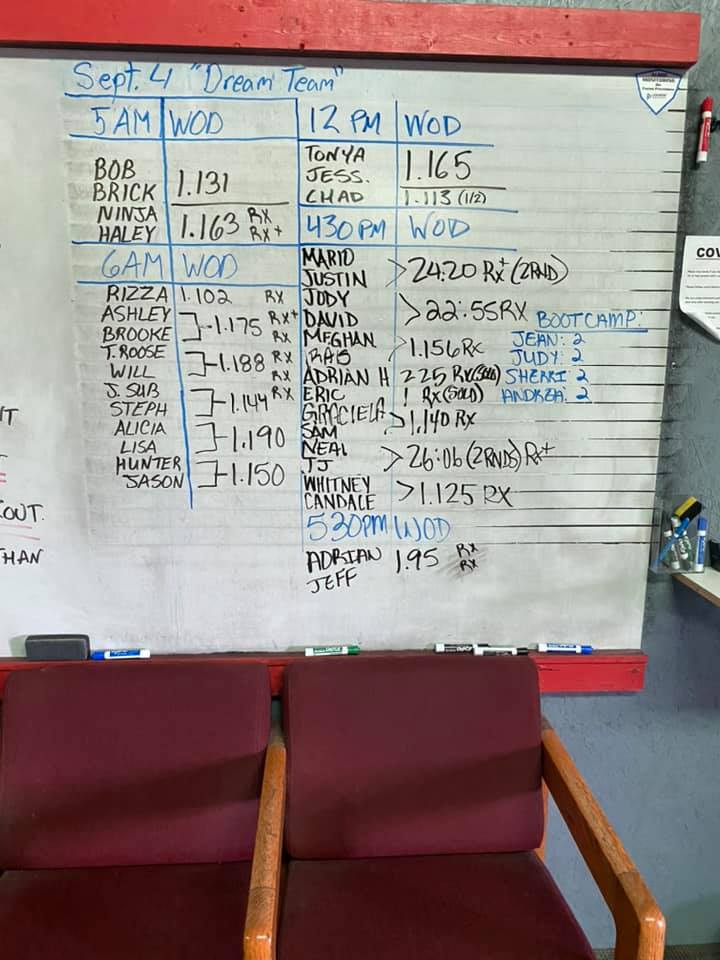 Sept. 4 "Dream Team"
5 AM WOD
BOB
BRICK 1.131
NINJA RX
HALEY 1.163 RX+
6AM WOD
RIZZA 1.102 RX
ASHLEY RX+
BROOKE 1.175 RX
T. ROOSE RX
WILL 1.188 RX
J. SUB RX
STEPH 1.144
ALICIA
LISA 1.190
HUNTER
JASON 1.150
12 PM WOD
TONYA
JESS. 1.165
CHAD 1.113 (1/2)
430PM WOD
MARIO
JUSTIN 24:20 RX+ (2RND)
JODY
DAVID 22:55 RX
MEGHAN
1.156 RX
ADRIAN H 225 RX (SOLO)
ERIC 1 RX (SOLO)
GRACIELA
SAM 1.140 RX
NEAL
TJ 26:06 (2RNDS) RX+
WHITNEY
CANDALE 1.125 RX
530PM WOD
ADRIAN 1.95 RX
JEFF RX
BOOTCAMP:
JEAN: 2
JUDY: 2
SHERRI 2
ANDREA: 2
MONITORING
COV
OUT.
HAN